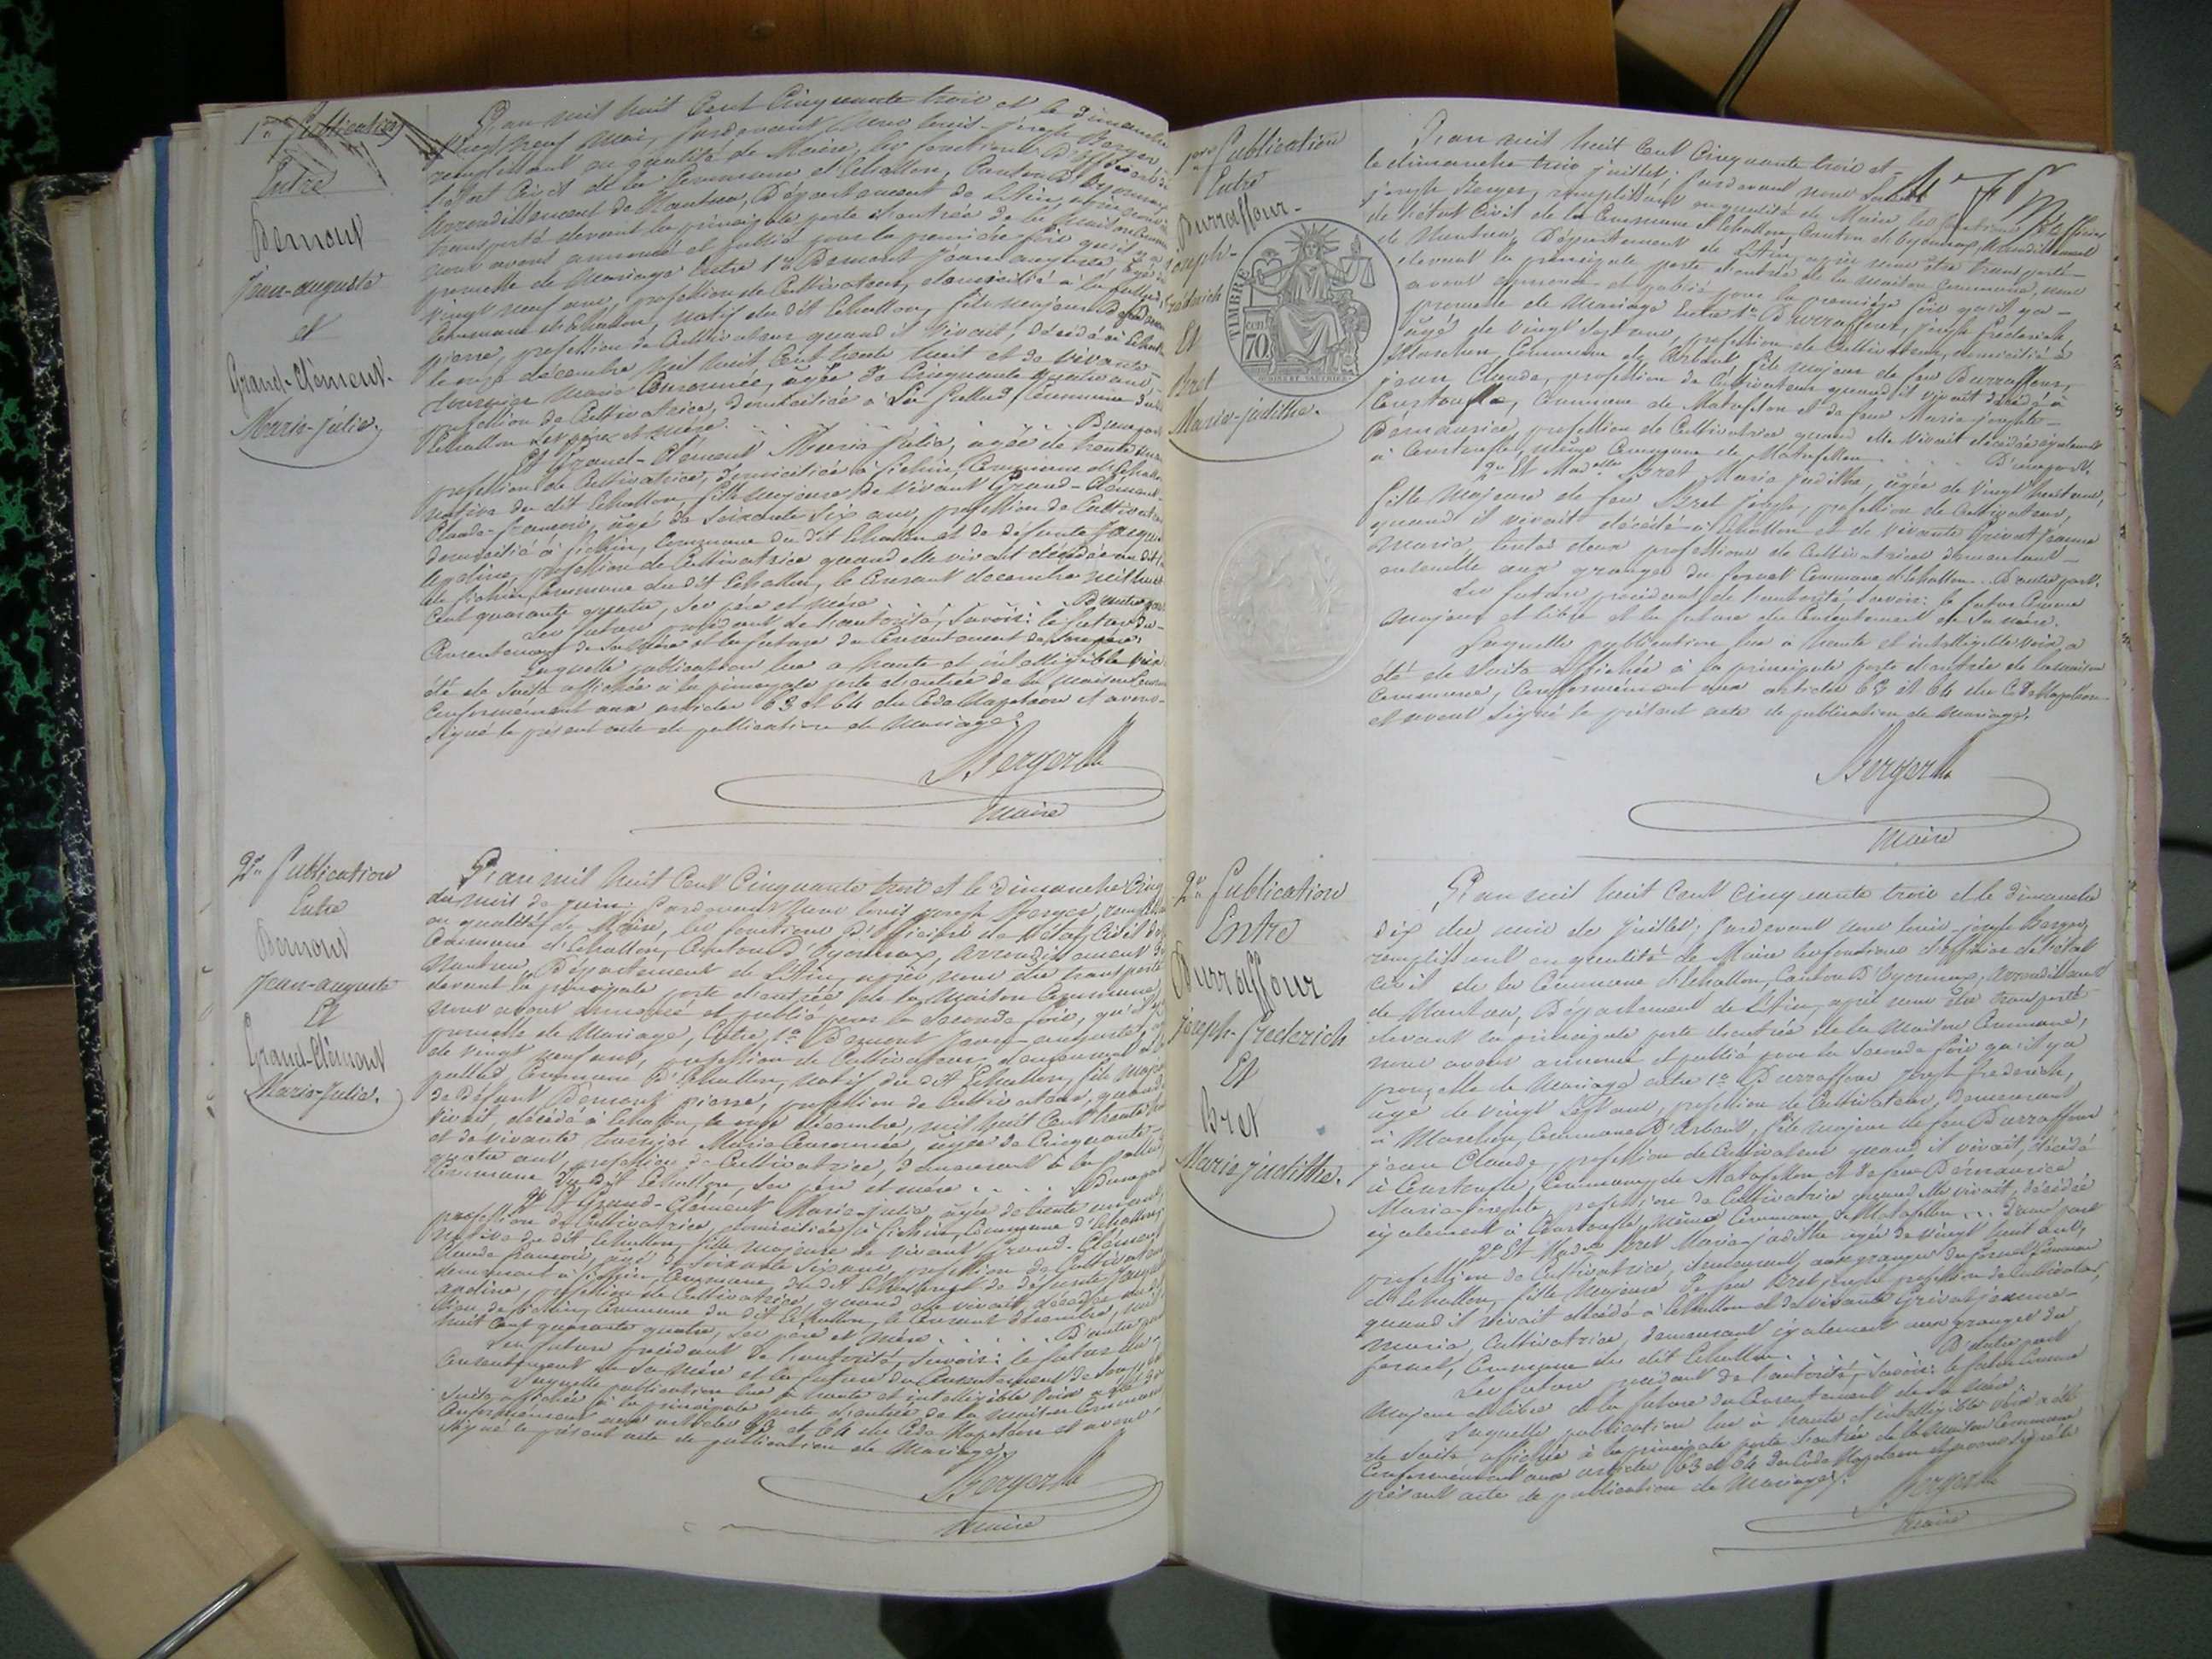 1ère Publication
Entre
Bernout
Jean-auguste
et
Grand-Clément
Marie-julie.
L'an mil huit Cent Cinquante trois et le Dimanche
vingt neuf Mai, pardevant Nous louis-joseph Berger
remplissant en qualité de Maire, les fonctions d'officier de
l'état Civil de la Commune d'Echallon, Canton d'Oyonnax
arrondissement de Nantua, Département de l'Ain, après nous être
transporté devant la principale porte d'entrée de la Maison Commune
nous avons annoncé et publié pour la première fois qu'il y a
promesse de Mariage Entre 1° Bernout jean auguste âgé de
vingt neuf ans, profession de Cultivateur, domicilié à
Commune d'Echallon, natif du dit Echallon, fils majeur de défunt
pierre, profession de Cultivateur quand il vivait, décédé à Echallon
le onze décembre mil huit Cent trente huit et de vivante
Marie Couronnée, âgée de Cinquante quatre ans,
profession de Cultivatrice, domiciliée à La Commune du dit
Echallon ses père et mère. D'une part
Et Grand-Clément Marie Julie, âgée de trente un ans
profession de Cultivatrice, domiciliée à Commune d'Echallon
native du dit Echallon, fille majeure de vivant Grand-Clément
Claude-françois, âgé de soixante six ans, profession de Cultivateur
domicilié à Commune du dit Echallon et de défunte
profession de Cultivatrice quand elle vivait décédée au dit
Commune du dit Echallon, le Courant décembre mil huit
Cent quarante quatre, ses père et mère D'autre part
Les futurs procédant de l'autorité, savoir: le futur du
Consentement de sa Mère et la future du Consentement de son père.
Laquelle publication lue a haute et intelligible voix
été de suite affichée à la principale porte d'entrée de la maison Commune
Conformément aux articles 63 et 64 du Code Napoléon et avons
signé le présent acte de publication de Mariage.
Berger
Maire
2e Publication
Entre
Bernout
Jean-auguste
Et
Grand-Clément
Marie-Julie.
L'an mil huit Cent Cinquante trois et le Dimanche Cinq
du mois de Juin, Pardevant Nous louis joseph Berger, remplissant
en qualité de Maire, les fonctions d'officier de l'état Civil de la
Commune d'Echallon, Canton d'Oyonnax, arrondissement de
Nantua, Département de l'Ain, après nous être transporté
devant la principale porte d'entrée de la Maison Commune,
nous avons annoncé et publié pour la seconde fois, qu'il y a
promesse de Mariage, Entre 1° Bernout Jean-auguste, âgé
de vingt neuf ans, profession de Cultivateur, demeurant à la
Commune d'Echallon, natif du dit Echallon, fils majeur
de défunt Bernout pierre, profession de Cultivateur, quand il
vivait, décédé à Echallon, le onze décembre, mil huit Cent trente huit
et de vivante Marie Couronnée, âgée de Cinquante
quatre ans, profession de Cultivatrice, demeurant à la
Commune du dit Echallon, ses père et mère D'une part
2° Et Grand-Clément Marie-julie, âgée de trente un ans
profession de Cultivatrice, domiciliée à Commune d'Echallon,
native du dit Echallon, fille majeure de vivant Grand-Clément
Claude françois, âgé de soixante six ans, profession de Cultivateur
demeurant à Commune du dit Echallon et de défunte
profession de Cultivatrice, quand elle vivait, décédée au dit
Commune du dit Echallon, le Courant décembre, mil
huit Cent quarante quatre, ses père et mère D'autre part
Les futurs procédant de l'autorité, savoir: le futur du
Consentement de sa Mère et la future du Consentement de son père
Laquelle publication lue à haute et intelligible voix a été de
suite affichée à la principale porte d'entrée de la maison Commune
Conformément aux articles 63 et 64 du Code Napoléon et avons
signé le présent acte de publication de Mariage.
Berger
Maire
1ère Publication
Entre
Burraffour
Joseph-
frederich
Et
Bret
Marie-judithe.
TIMBRE
70
L'an mil huit Cent Cinquante trois et
le dimanche trois juillet; pardevant nous Louis
joseph Berger, remplissant en qualité de Maire les fonctions d'officier
de l'état Civil de la Commune d'Echallon, Canton d'Oyonnax, Arrondissement
de Nantua, Département de l'Ain, après nous être transporté
devant la principale porte d'entrée de la maison Commune, nous
avons annoncé et publié pour la première fois qu'il y a
promesse de Mariage Entre 1° Burraffour, joseph frederich,
âgé de vingt sept ans, profession de Cultivateur, domicilié à
Marchon, Commune de Arbent, fils majeur de feu Burraffour,
jean Claude, profession de Cultivateur quand il vivait décédé à
Coustoufle, Commune de Matafelon et de feue Marie josephte
Démaurice, profession de Cultivatrice quand elle vivait décédée également
à Coustoufle, même Commune de Matafelon D'une part.
2° Et Madelle Bret Marie Judithe, âgée de vingt huit ans,
fille Majeure de feu Bret joseph, profession de Cultivateur,
quand il vivait décédé à Echallon et de vivante Grivat jeanne
Marie, toutes deux profession de Cultivatrice demeurant
ensemble aux granges du fornet Commune d'Echallon... D'autre part.
Les futurs procédant de l'autorité savoir: le futur Comme
Majeur et libre et la future du Consentement de sa mère.
Laquelle publication lue à haute et intelligible voix a
été de suite affichée à la principale porte d'entrée de la maison
Commune, Conformément aux articles 63 et 64 du Code Napoléon
et avons signé le présent acte de publication de Mariage.
Berger
Maire
2e Publication
Entre
Burraffour
joseph-frederich
Et
Bret
Marie judithe.
L'an mil huit Cent Cinquante trois et le Dimanche
dix du mois de juillet; Pardevant nous louis-joseph Berger,
remplissant en qualité de Maire les fonctions d'officier de l'état
Civil de la Commune d'Echallon, Canton D'Oyonnax, Arrondissement
de Nantua, Département de l'Ain, après nous être transporté
devant la principale porte d'entrée de la Maison Commune,
nous avons annoncé et publié pour la seconde fois qu'il y a
promesse de Mariage entre 1° Burraffour joseph frederich,
âgé de vingt sept ans, profession de Cultivateur, demeurant
à Marchon, Commune D'Arbent, fils majeur de feu Burraffour
jean Claude, profession de Cultivateur quand il vivait, décédé
à Coustoufle, Commune de Matafelon et de feue Démaurice
Marie-josephte, profession de Cultivatrice quand elle vivait, décédée
également à Coustoufle, même Commune de Matafelon... D'une part
2° Et Madelle Bret Marie-judithe âgée de vingt huit ans,
profession de Cultivatrice, demeurant aux granges du fornet Commune
d'Echallon, fille Majeure de feu Bret joseph profession de Cultivateur,
quand il vivait décédé à Echallon et de vivante Grivat jeanne-
Marie, Cultivatrice, demeurant également aux granges du
fornet, Commune du dit Echallon D'autre part
Les futurs procédant de l'autorité, savoir: le futur Comme
Majeur et libre et la future du Consentement de sa Mère.
Laquelle publication lue à haute et intelligible voix a été
de suite affichée à la principale porte d'entrée de la Maison Commune
Conformément aux articles 63 et 64 du Code Napoléon et avons signé le
présent acte de publication de Mariage.
Berger
Maire